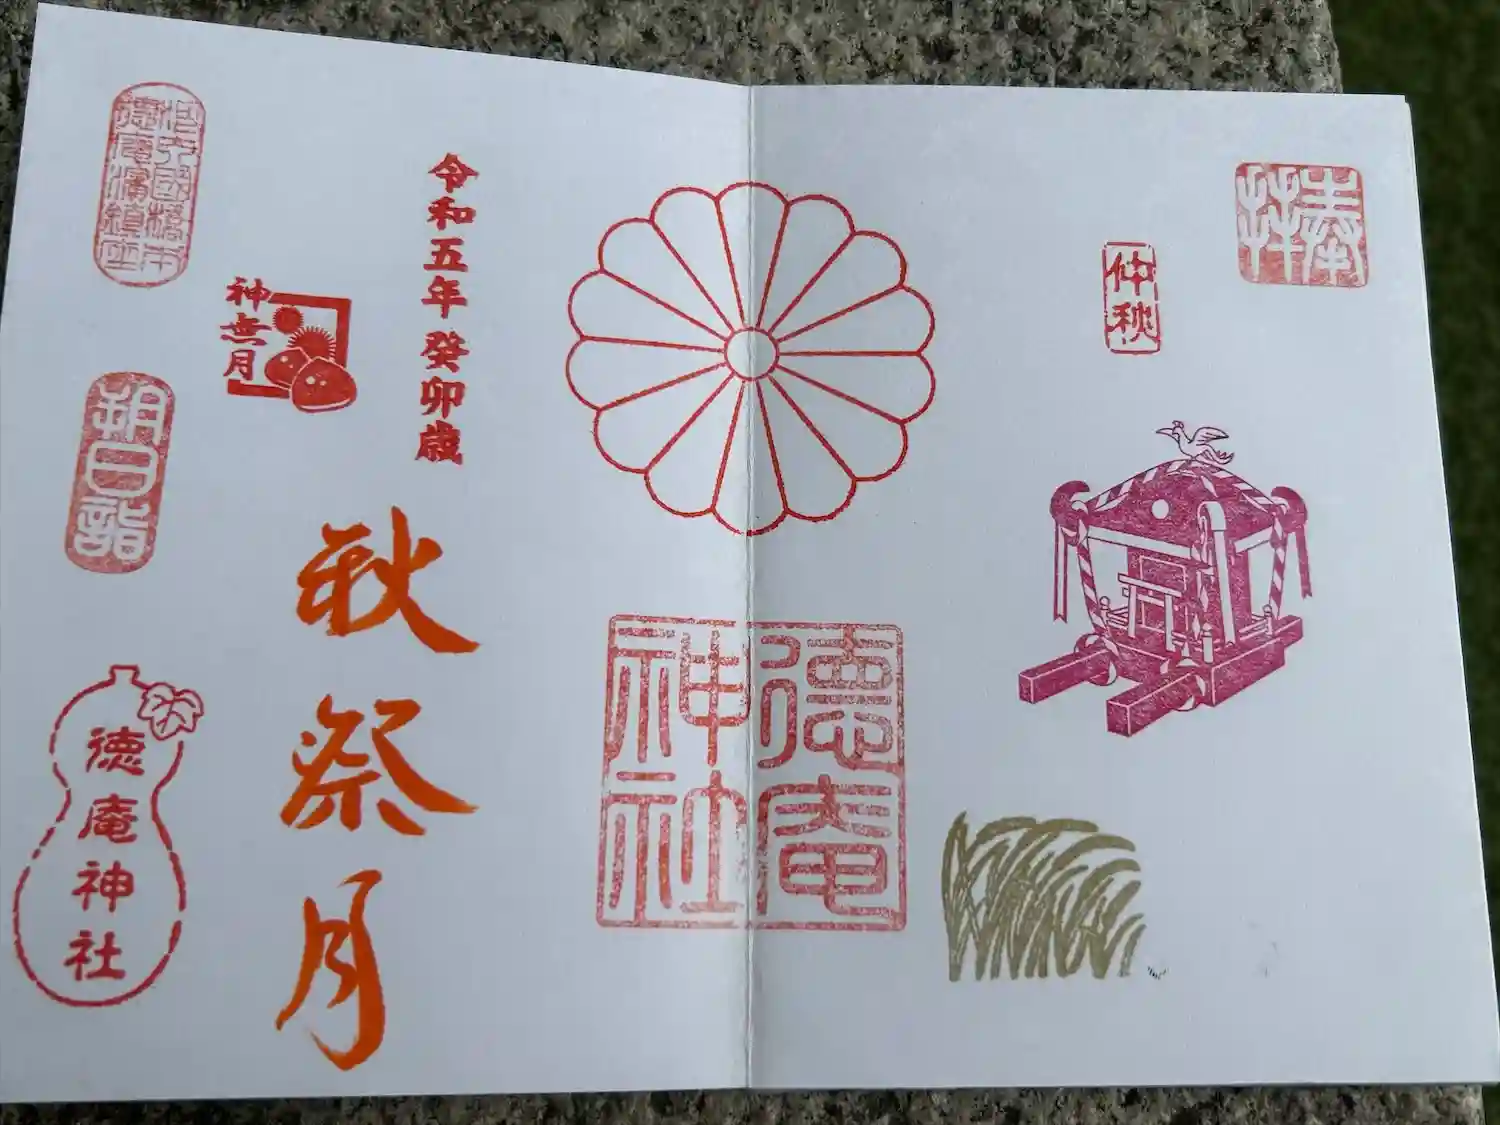 奉拝
仲秋
徳庵
神社
令和五年 癸卯歳
秋祭月
神無月
徳庵濱鎮座
朔日詣
徳庵神社